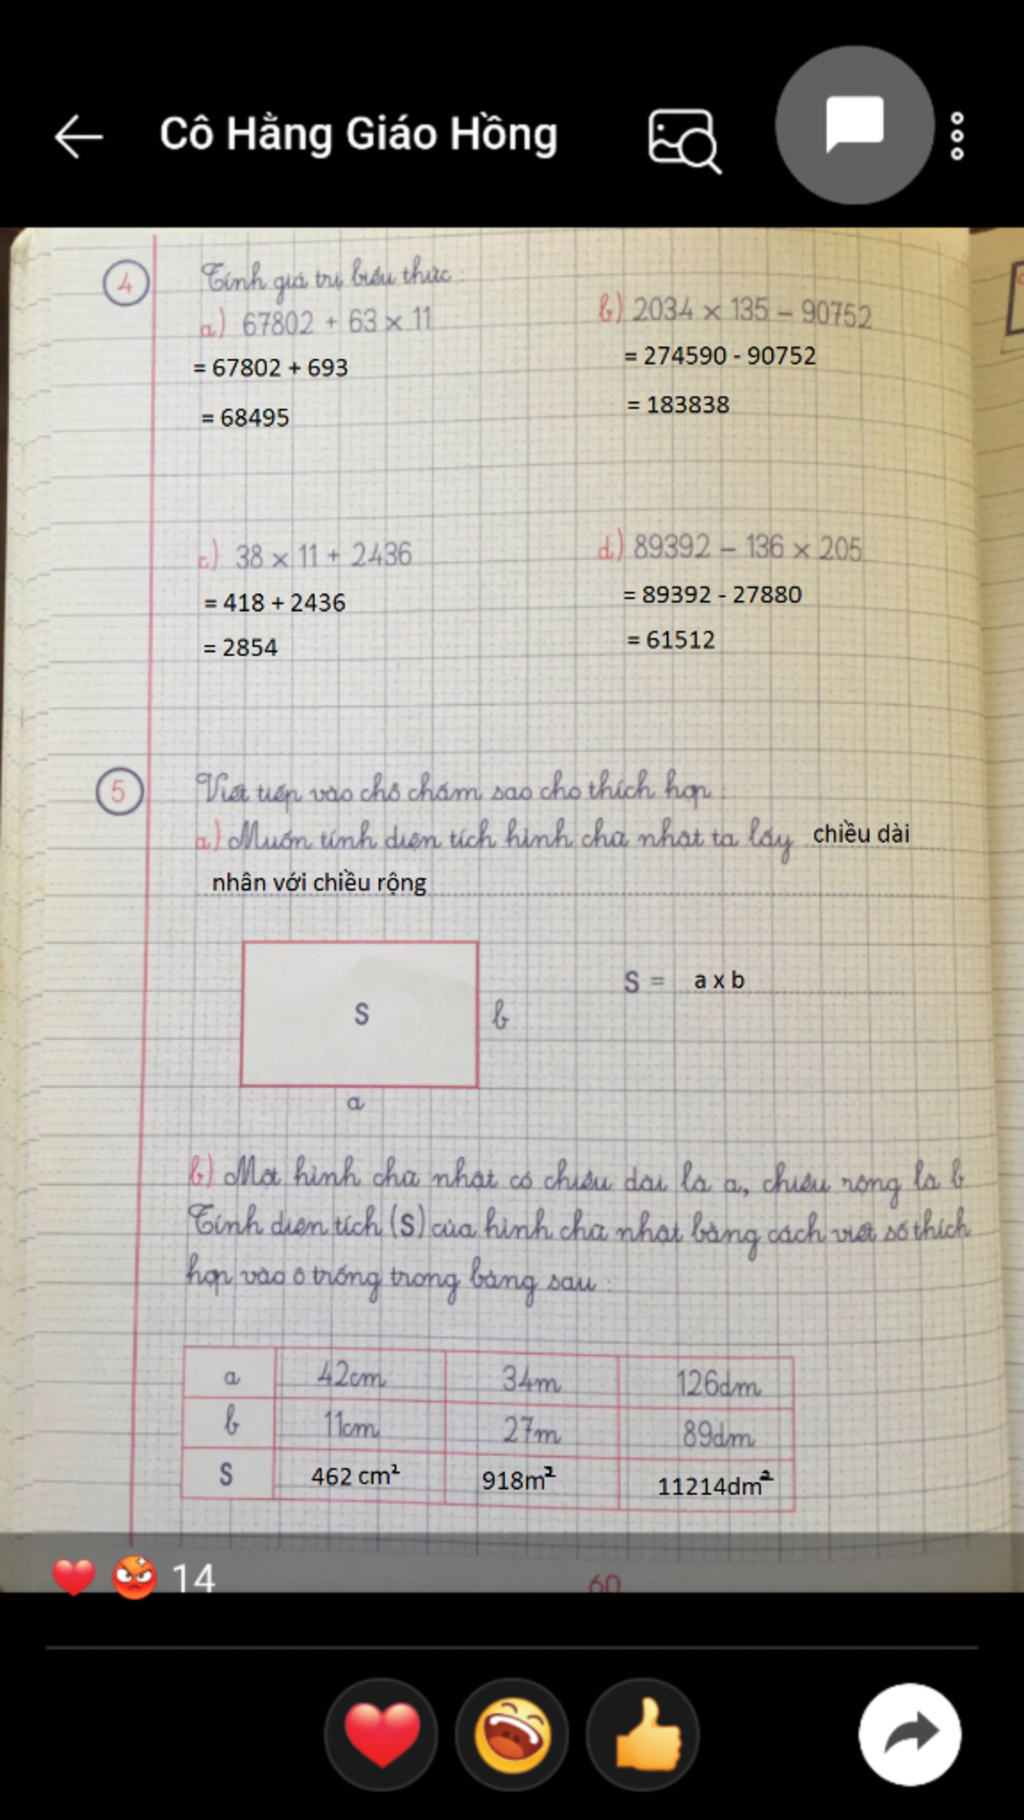 Cô Hằng Giáo Hồng
4 Tính giá trị biểu thức :
a) 67802 + 63 × 11
b) 2034 × 135 – 90752
= 67802 + 693
= 274590 - 90752
= 68495
= 183838
c) 38 × 11 + 2436
d) 89392 – 136 × 205
= 418 + 2436
= 89392 - 27880
= 2854
= 61512
5 Viết tiếp vào chỗ chấm sao cho thích hợp :
a) Muốn tính diện tích hình chữ nhật ta lấy chiều dài
nhân với chiều rộng
S
b
S = a x b
a
b) Một hình chữ nhật có chiều dài là a, chiều rộng là b
Tính diện tích (S) của hình chữ nhật bằng cách viết số thích
hợp vào ô trống trong bảng sau :
a 42cm 34m 126dm
b 11cm 27m 89dm
S 462 cm² 918m² 11214dm²
14
60